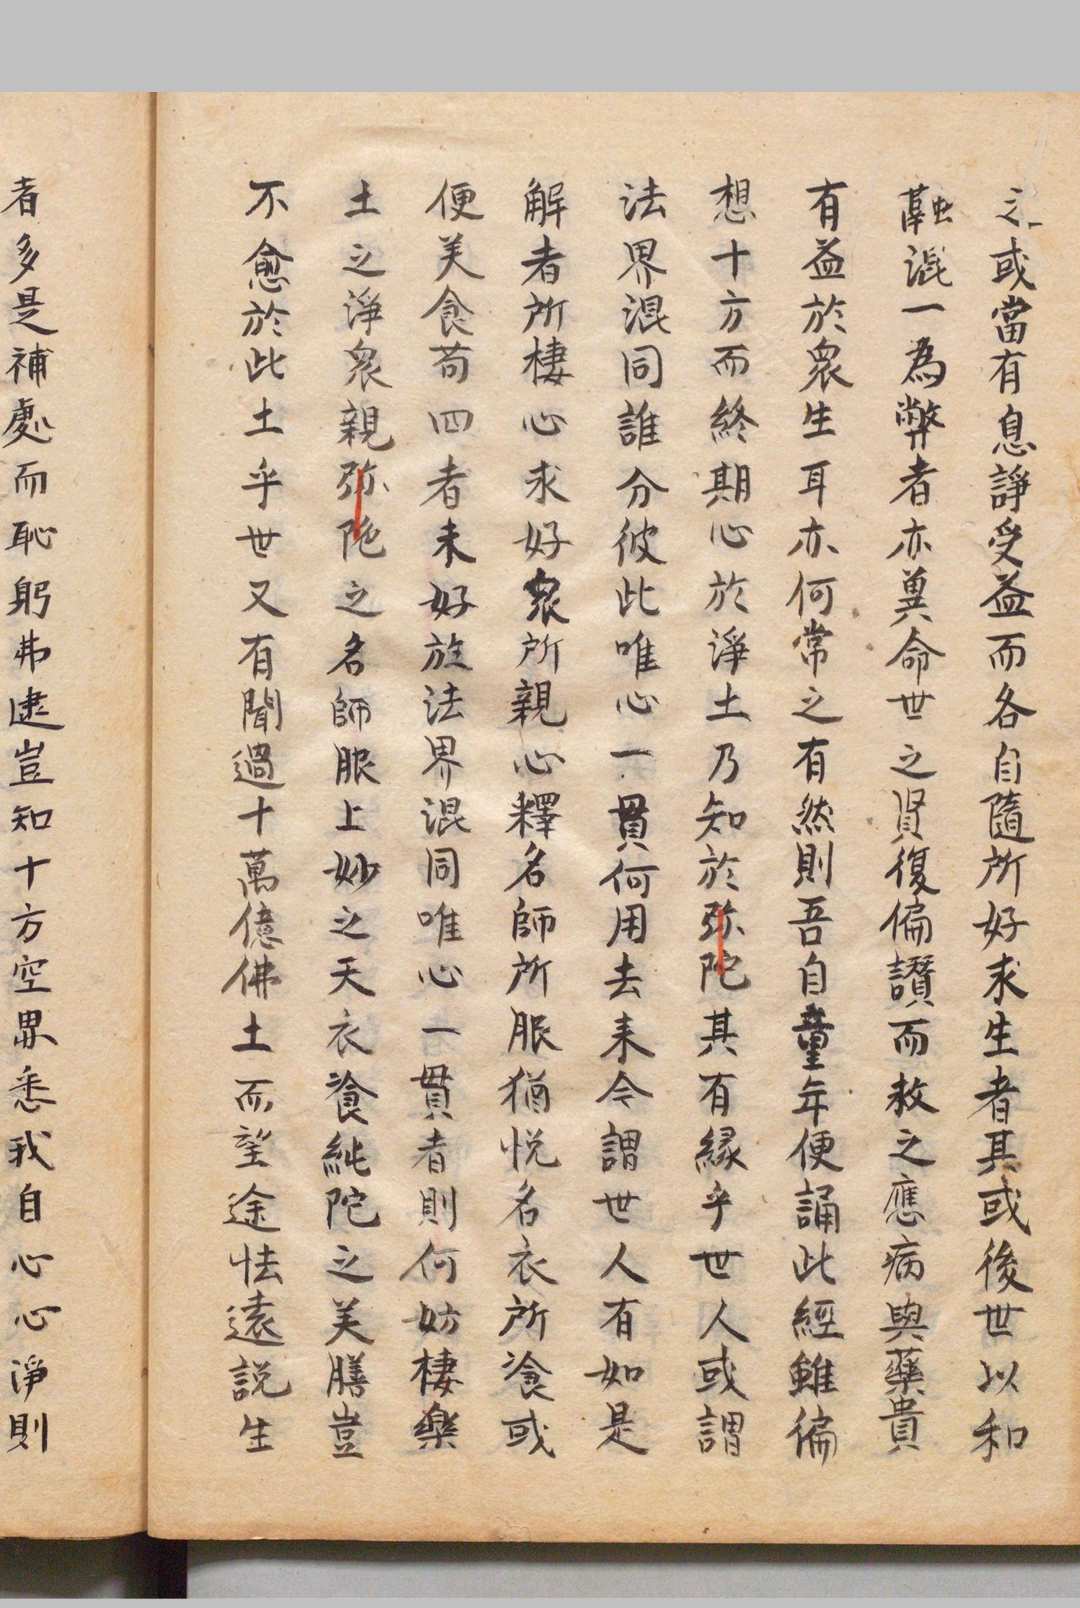 之或當有息諍受益而各自隨所好求生者其或後世以和
融混一為弊者亦冀命世之賢復偏讚而救之應病與藥貴
有益於衆生耳亦何常之有然則吾自童年便誦此經雖偏
想十方而終期心於淨土乃知於弥陀其有縁乎世人或謂
法界混同誰分彼此唯心一貫何用去来今謂世人有如是
解者所棲心求好衆所親心釋名師所服猶悦名衣所飡或
便美食苟四者未好於法界混同唯心一貫者則何妨棲樂
土之淨衆親弥陀之名師服上妙之天衣飡純陀之美膳豈
不愈於此土乎世又有聞過十萬億佛土而望途怯遠説生
者多是補處而恥躬弗逮豈知十方空界悉我自心心淨則